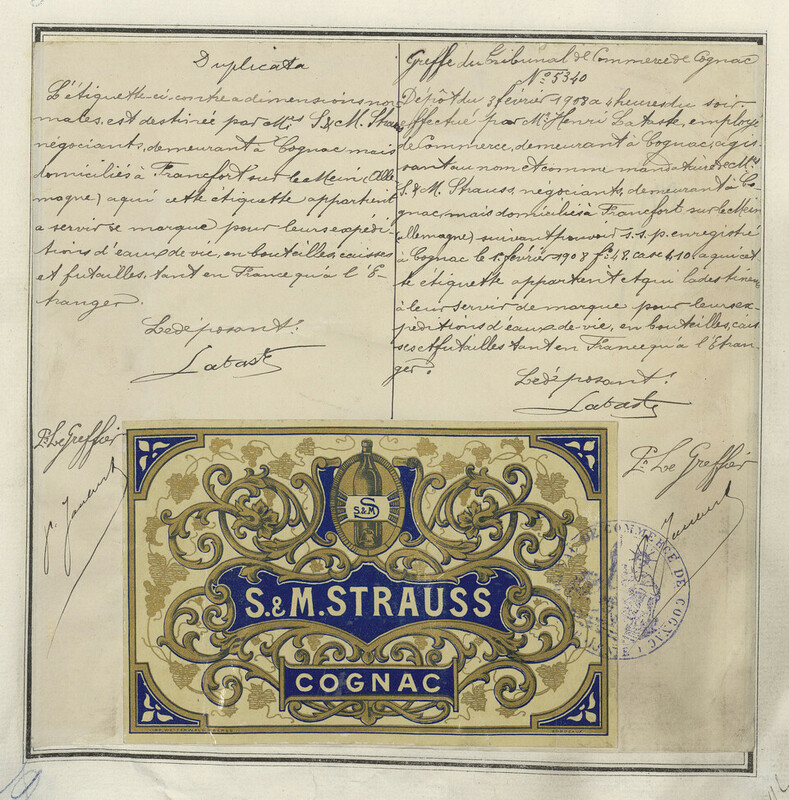 Duplicata
L'étiquette ci-contre a dimensions nor-
males, est destinée par Mrs S. & M. Strauss
négociants, demeurant à Cognac mais
domiciliés à Francfort sur le Mein (Alle-
magne) a qui cette étiquette appartient
a servir de marque pour leurs expédi-
tions d'eaux de vie, en bouteilles, caisses
et futailles, tant en France qu'à l'E-
tranger.
Le déposant:
Labaste
Greffe du Tribunal de Commerce de Cognac
No 5340
Dépôt du 3 février 1908 a 4 heures du soir
effectué par Mr Henri Labaste, employé
de Commerce, demeurant à Cognac, agis-
sant au nom et comme mandataire de Mrs
S. & M. Strauss, négociants, demeurant à Co-
gnac, mais domiciliés à Francfort sur le Mein
(allemagne) suivant pouvoir s.s.p. enregistré
à Cognac le 1er février 1908 fo 48 case 410 a qui cet-
te étiquette appartient et qui la destinent
à leur servir de marque pour leurs ex-
péditions d'eaux de vie, en bouteilles, cais-
ses et futailles tant en France qu'à l'Etran-
ger.
Le déposant:
Labaste
Pr Le Greffier
Pr Le Greffier
S
S & M
S. & M. STRAUSS
COGNAC
DE COMMERCE DE COGNAC